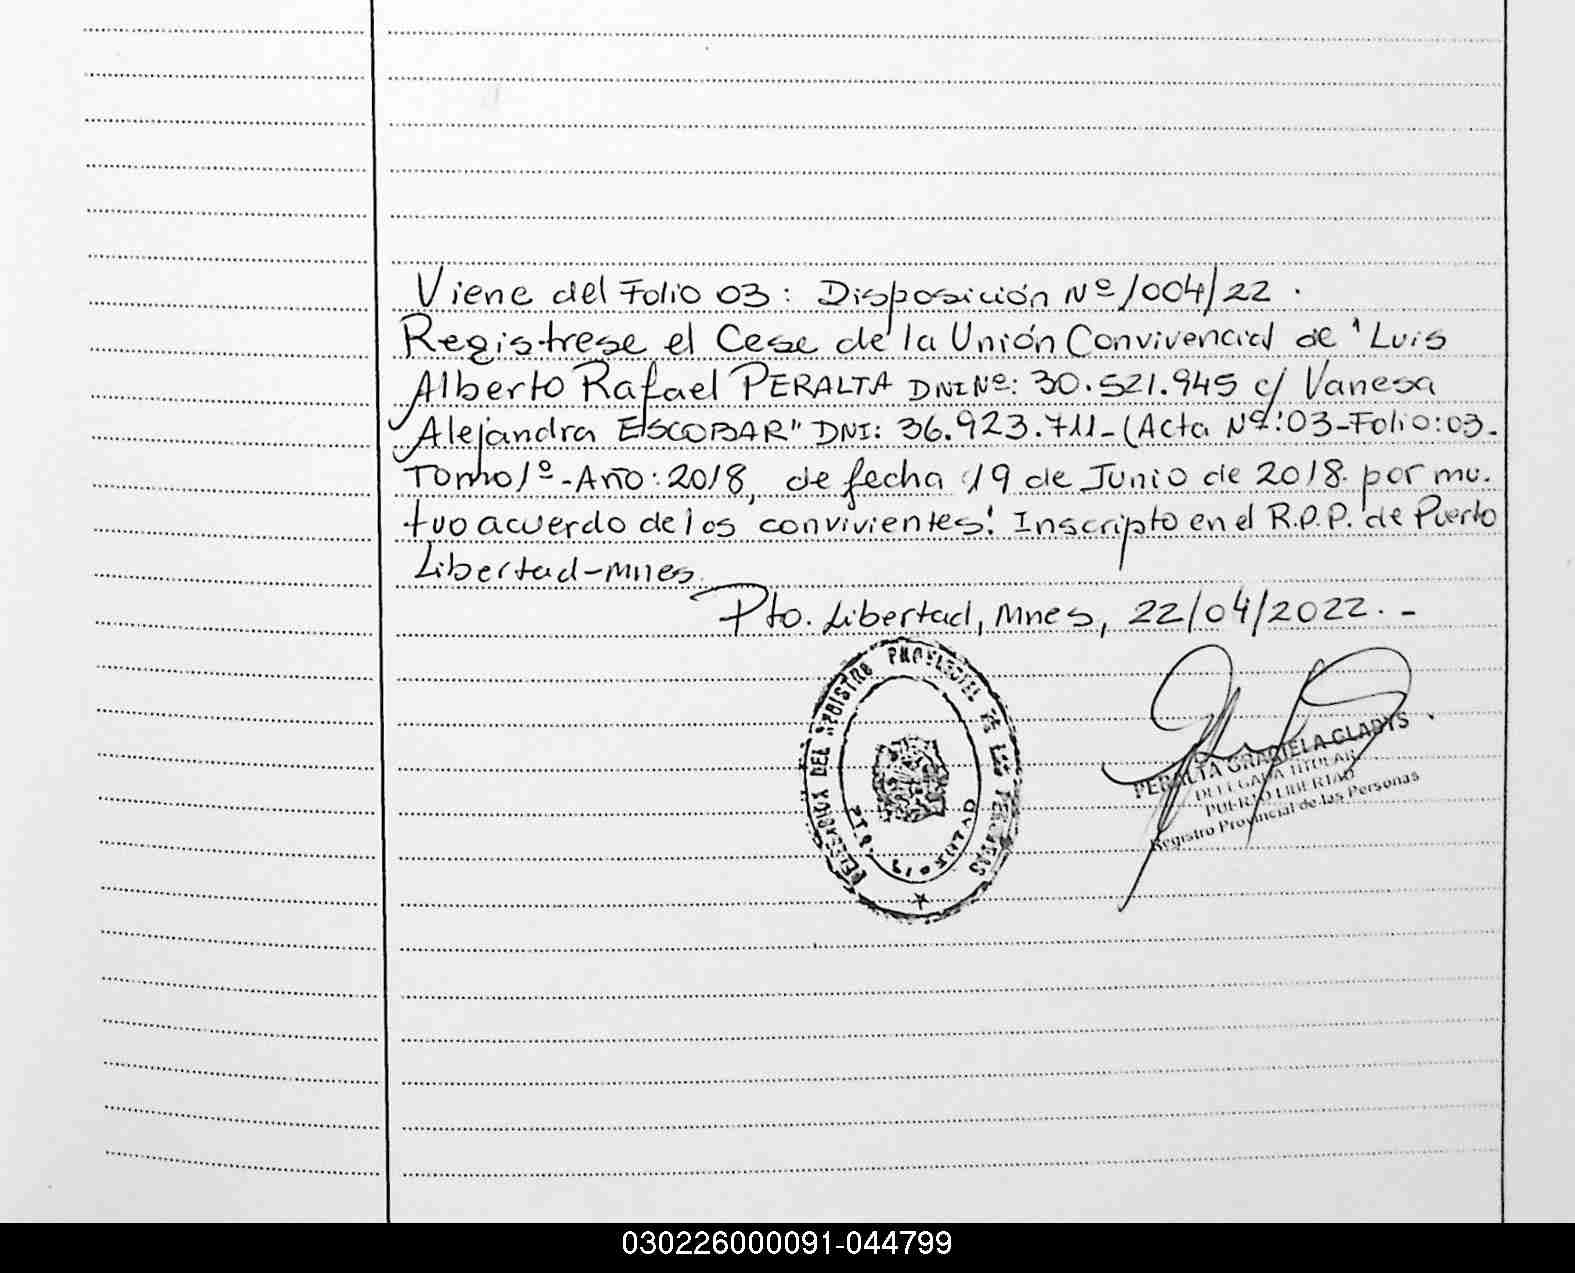 Viene del Folio 03: Disposición Nº/004/22.
Registrese el Cese de la Unión Convivencial de "Luis
Alberto Rafael PERALTA DNI Nº: 30.521.945 c/ Vanesa
Alejandra ESCOBAR" DNI: 36.923.711-(Acta Nº:03-Folio:03-
Tomo 1º-Año: 2018, de fecha 19 de Junio de 2018 por mu-
tuo acuerdo de los convivientes". Inscripto en el R.P.P. de Puerto
Libertad-Mnes.
Pto. Libertad, Mnes, 22/04/2022.-
DELEGACION DEL REGISTRO PROVINCIAL DE LAS PERSONAS
PTO. LIBERTAD
PERALTA GRACIELA GLADYS
DELEGADA TITULAR
PUERTO LIBERTAD
Registro Provincial de las Personas
030226000091-044799